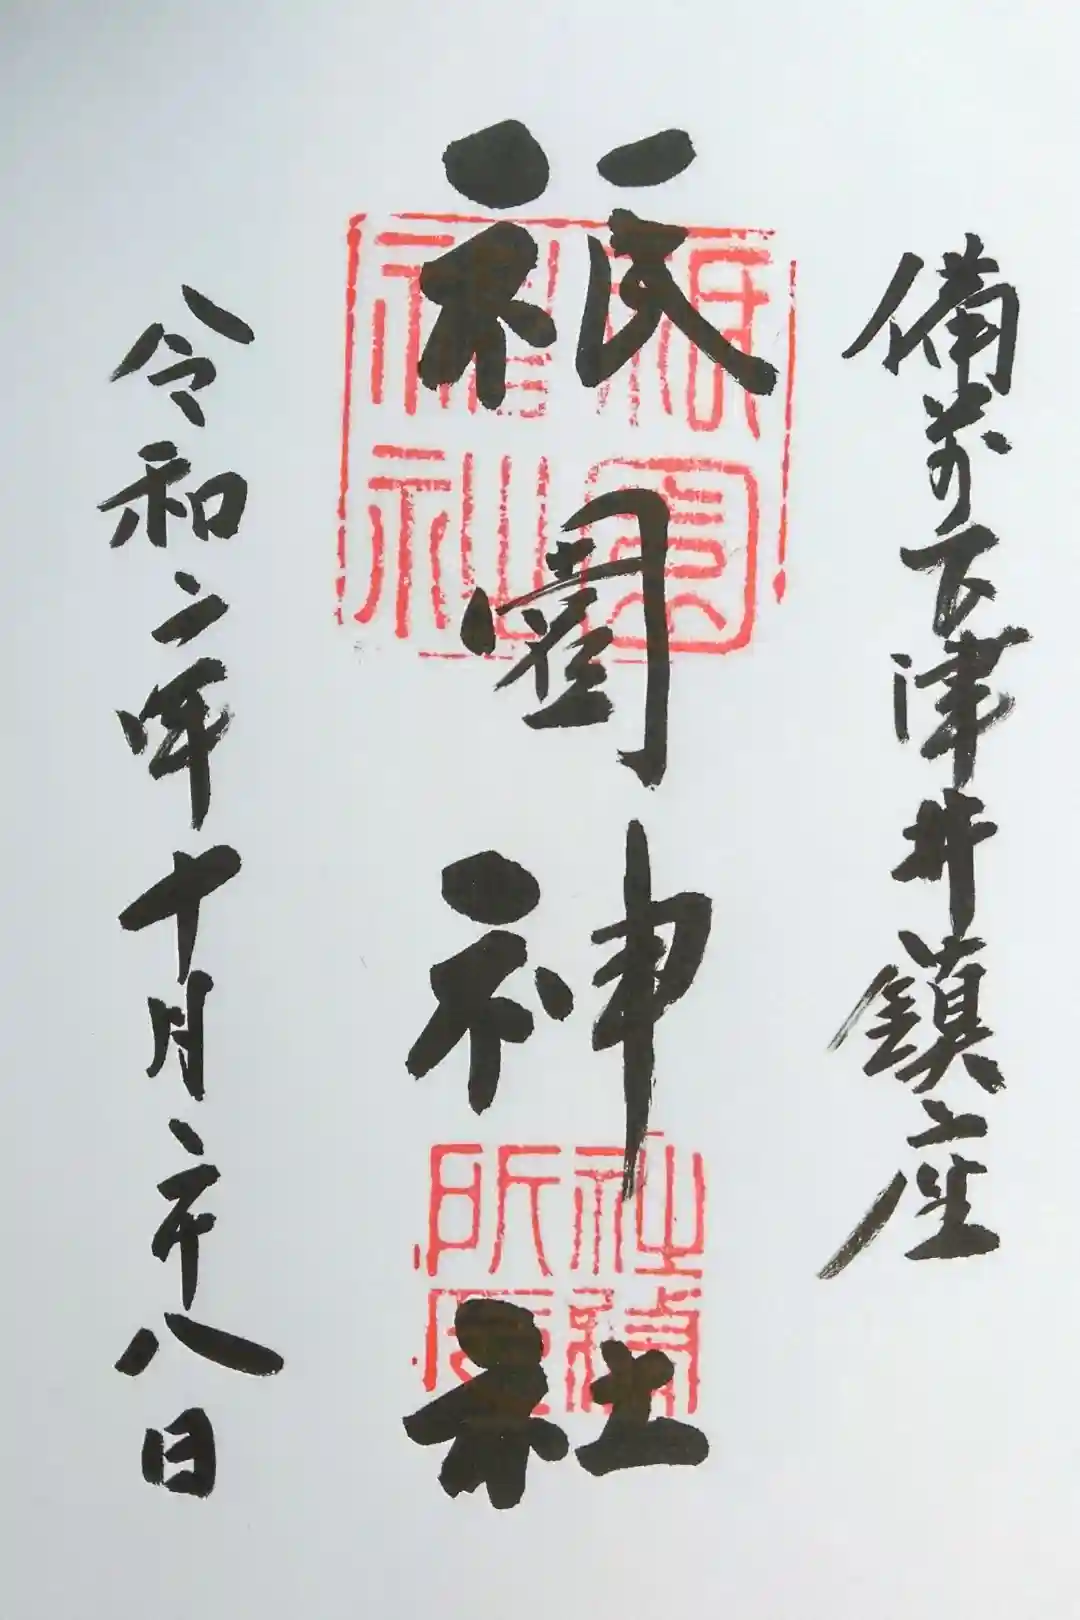 備前下津井鎮座
祇園神社
令和二年十月二十八日
祇園
神社